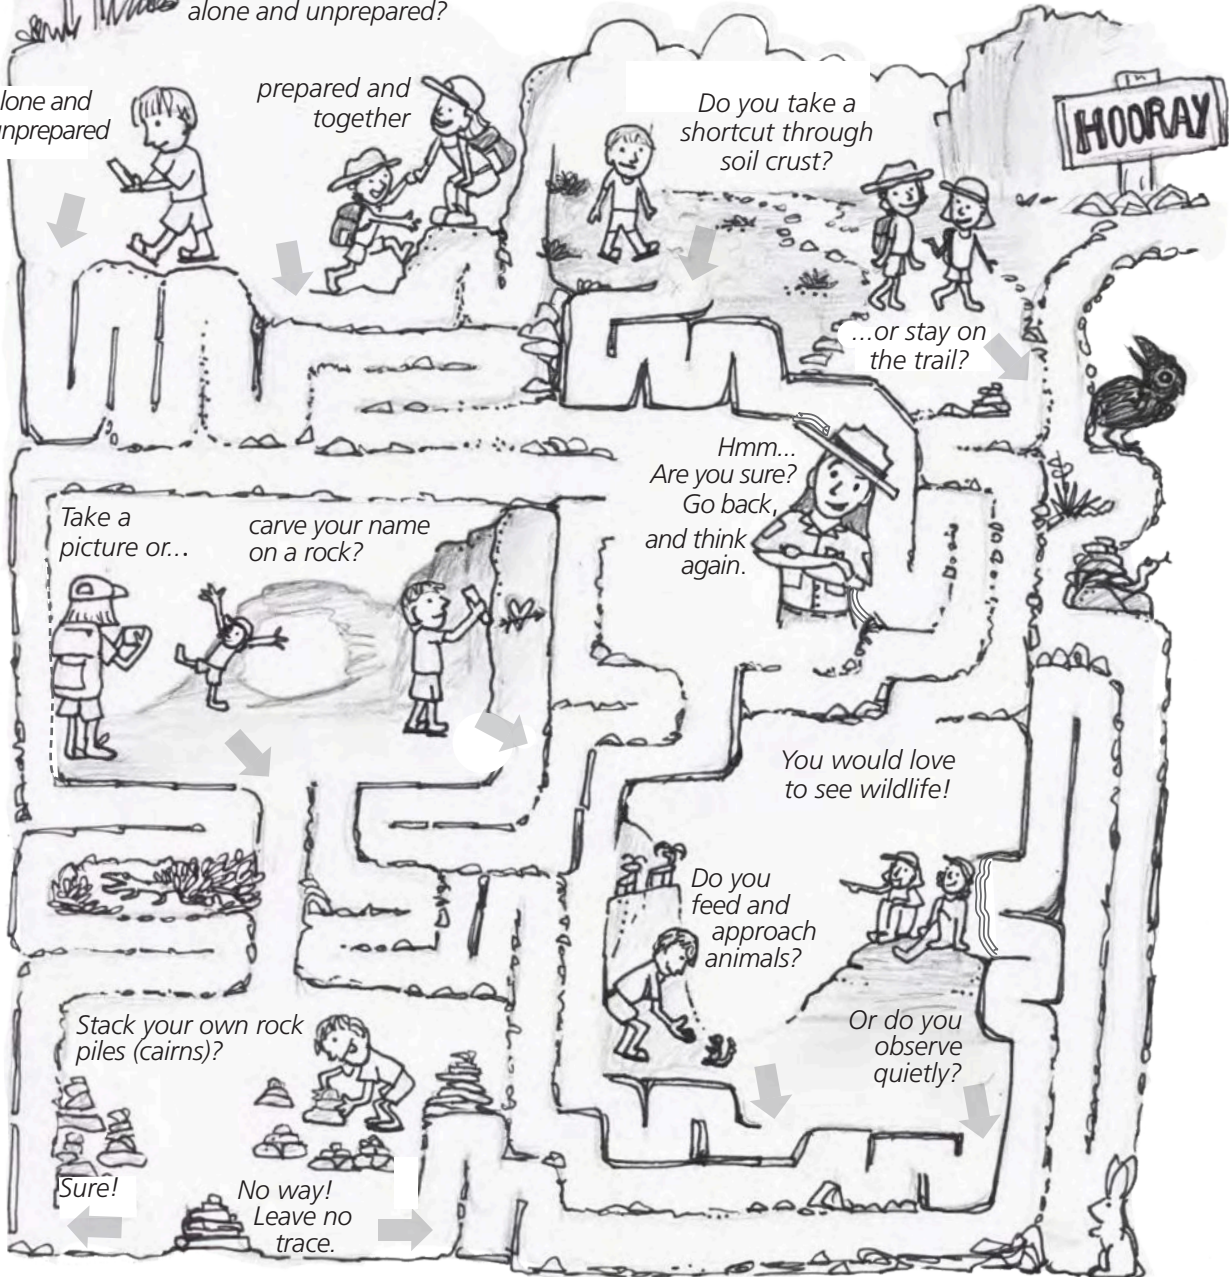 alone and unprepared?
lone and
unprepared
prepared and
together
Do you take a
shortcut through
soil crust?
HOORAY
...or stay on
the trail?
Hmm...
Are you sure?
Go back,
and think
again.
Take a
picture or...
carve your name
on a rock?
You would love
to see wildlife!
Do you
feed and
approach
animals?
Or do you
observe
quietly?
Stack your own rock
piles (cairns)?
Sure!
No way!
Leave no
trace.